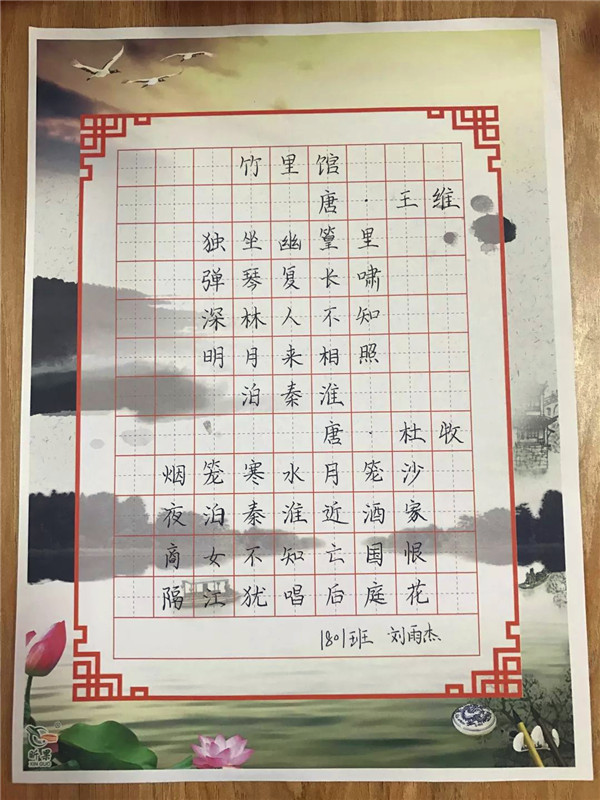 竹里馆
唐·王维
独坐幽篁里
弹琴复长啸
深林人不知
明月来相照
泊秦淮
唐·杜牧
烟笼寒水月笼沙
夜泊秦淮近酒家
商女不知亡国恨
隔江犹唱后庭花
1801班 刘雨杰